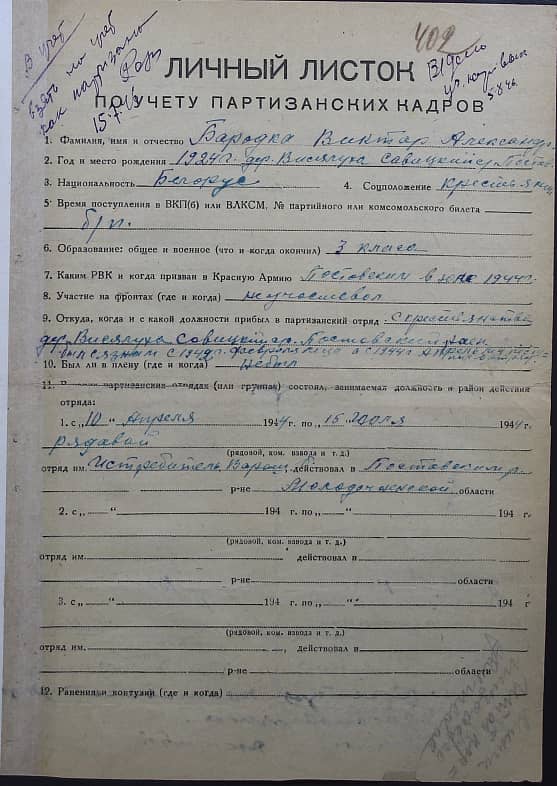 402
В учёт
взять на учёт
как партизана
ЛИЧНЫЙ ЛИСТОК
ПО УЧЕТУ ПАРТИЗАНСКИХ КАДРОВ
1. Фамилия, имя и отчество Бародка Виктар Александр
2. Год и место рождения 1924 г. дер. Висялуха Савицкий с/с Постав
3. Национальность Белорус 4. Соцположение крестьянин
5. Время поступления в ВКП(б) или ВЛКСМ, № партийного или комсомольского билета
б/п.
6. Образование: общее и военное (что и когда окончил) 3 класса
7. Каким РВК и когда призван в Красную Армию Поставским в 1944 г.
8. Участие на фронтах (где и когда) неучаствовал
9. Откуда, когда и с какой должности прибыл в партизанский отряд с крестьянства
дер. Висялуха Савицкий с/с. Поставский район
был связным с 1942 г. февраль м-ца а с 1944 г. Апреля
10. Был ли в плену (где и когда) небыл
11. В каких партизанских отрядах (или группах) состоял, занимаемая должность и район действия
отряда:
1. с „10“ Апреля 1944 г. по „15 Июля 1944 г.
рядавой
(рядовой, ком. взвода и т. д.)
отряд им. Истребитель Ворош. действовал в Поставским р.
р-не Молодечненской области
2. с „ “ 194 г. по „ “ 194 г.
(рядовой, ком. взвода и т. д.)
отряд им. действовал в
р-не области
3. с „ “ 194 г. по „ “ 194 г.
(рядовой, ком. взвода и т. д.)
отряд им. , действовал в
р-не области
12. Ранения и контузии (где и когда)